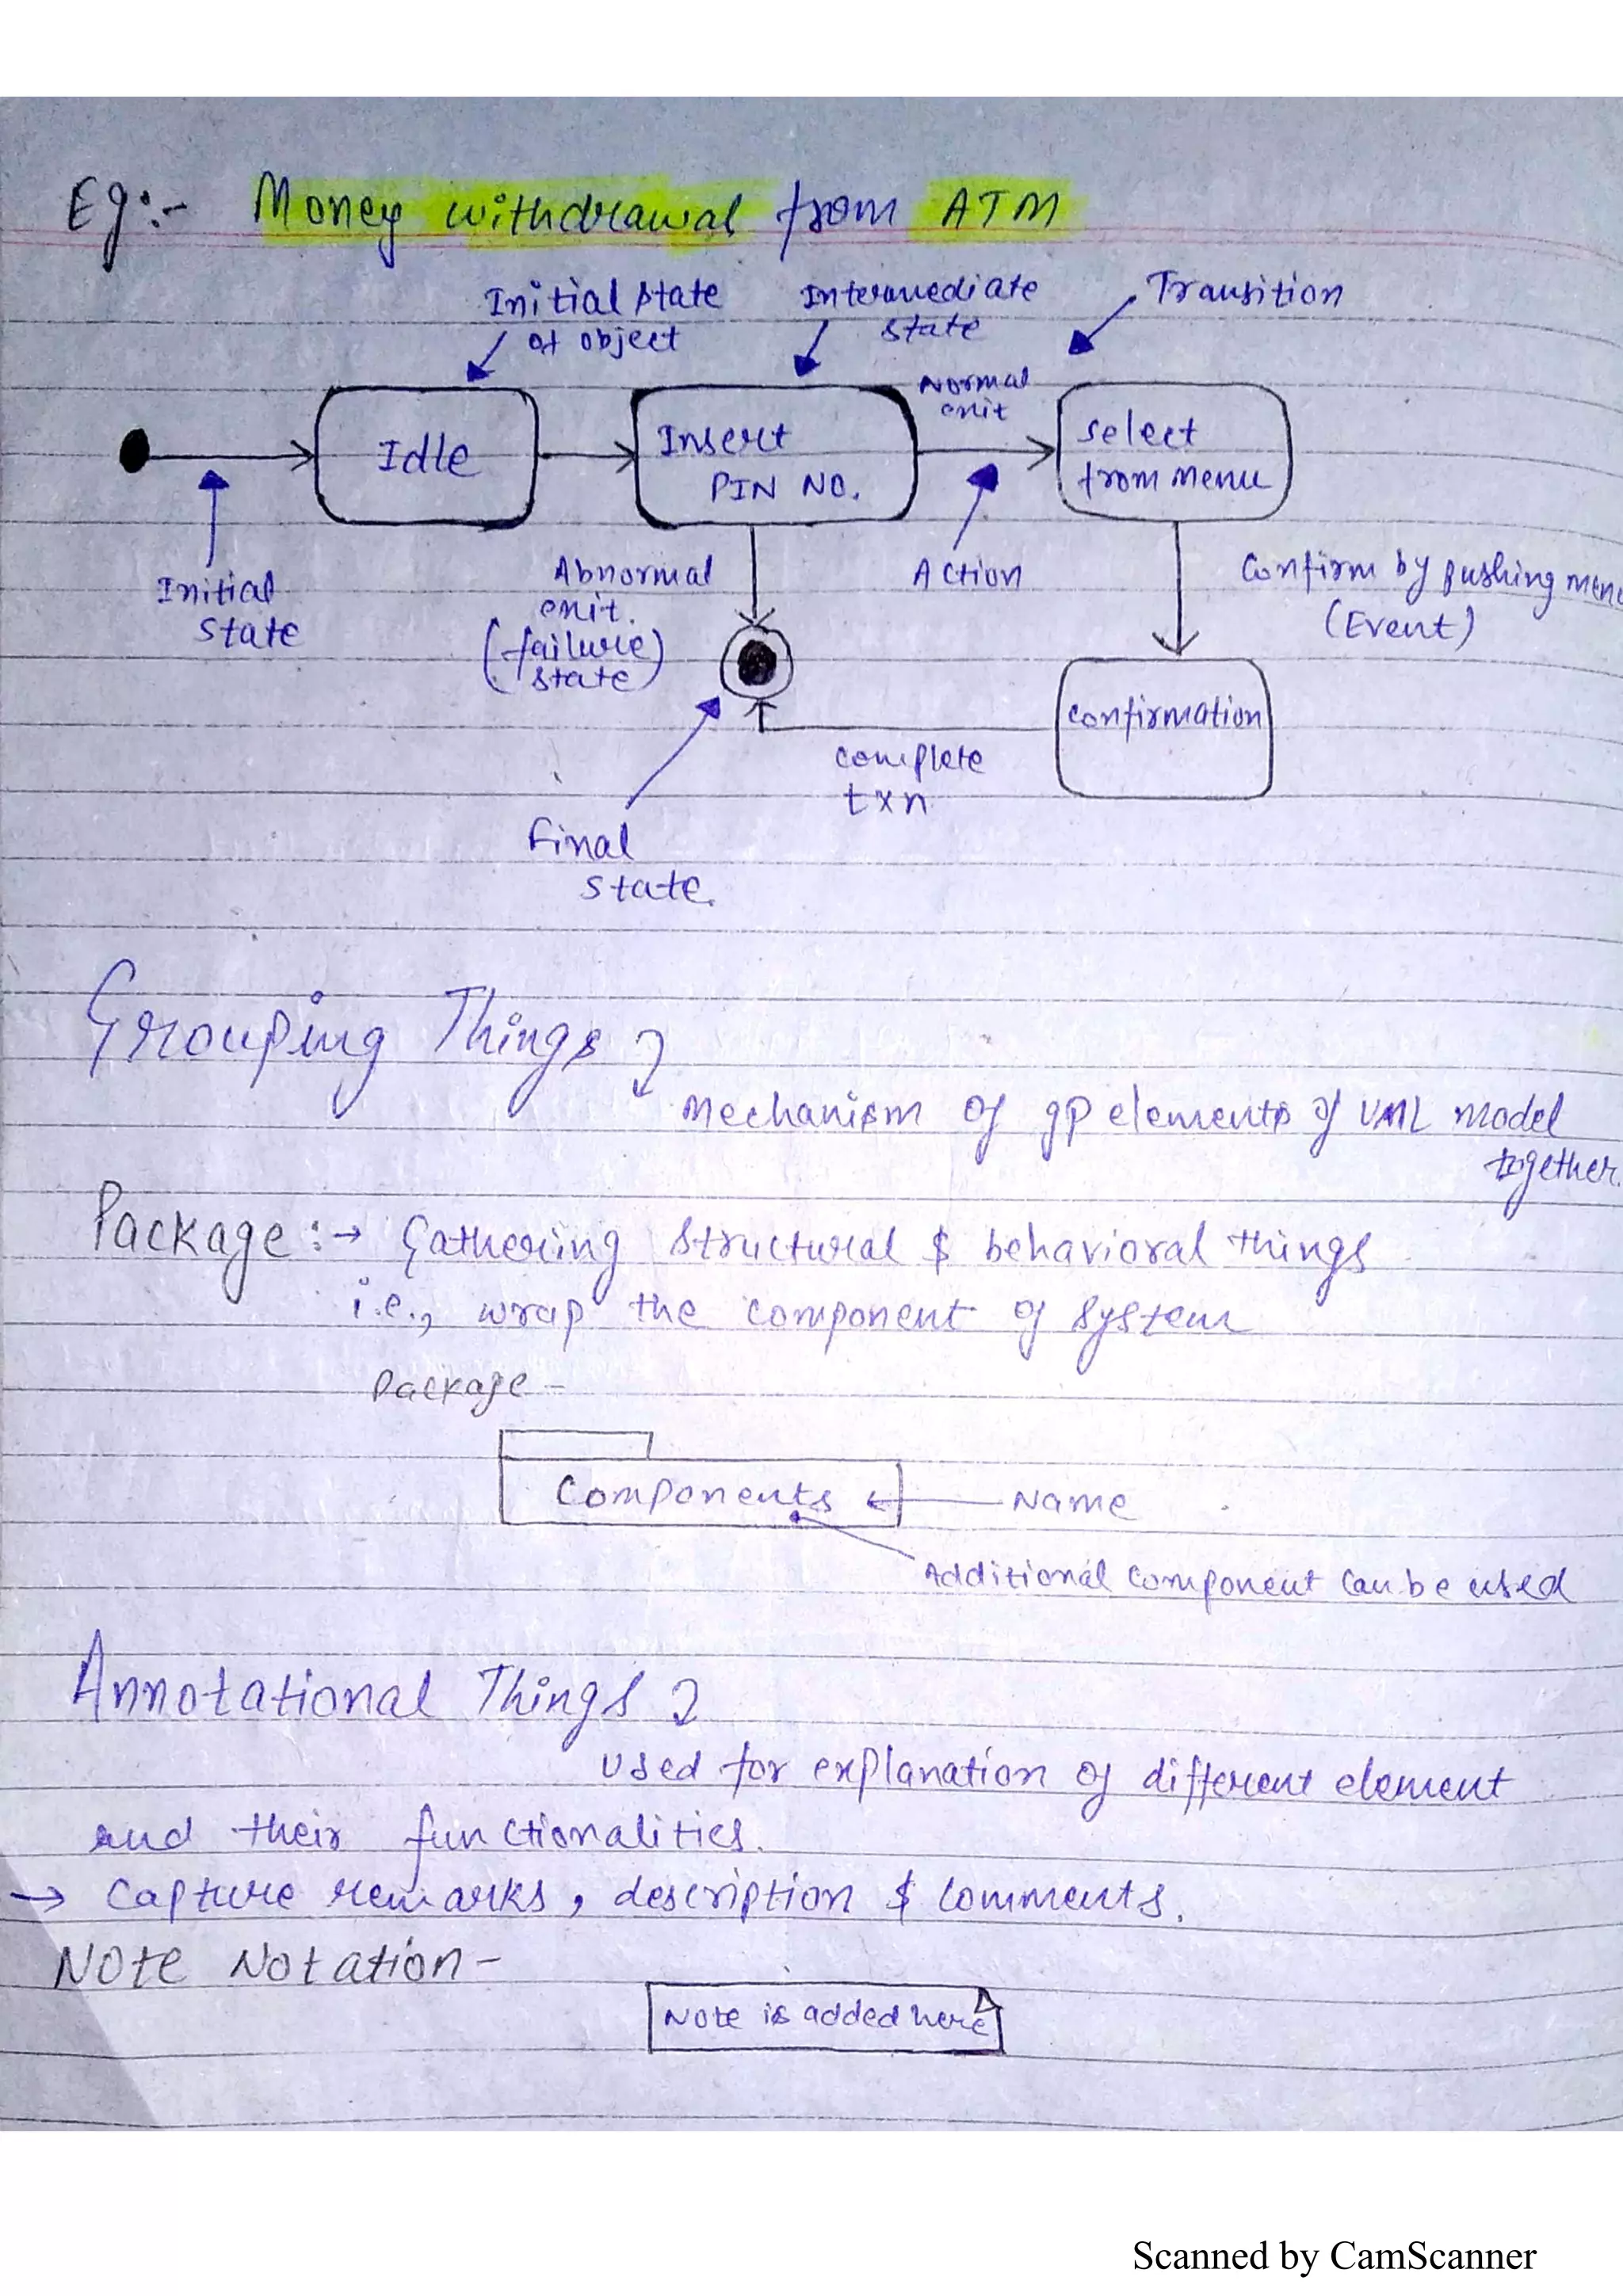 Eg:- Money withdrawal from ATM
Initial state
of object
Intermediate
state
Transition
Normal
exit
Idle
Insert
PIN NO.
Select
from menu
Initial
state
Abnormal
exit.
(failure)
state
Action
Confirm by pushing menu
(Event)
confirmation
complete
txn
Final
state.
Grouping Things
Mechanism of gp elements of UML model
together.
Package :→ Gathering structural & behavioral things
i.e., wrap the component of system
Package -
Components ← Name
Additional component can be used
Annotational Things
Used for explanation of different element
and their functionalities.
→ Capture remarks, description & comments.
Note Notation -
Note is added here
Scanned by CamScanner